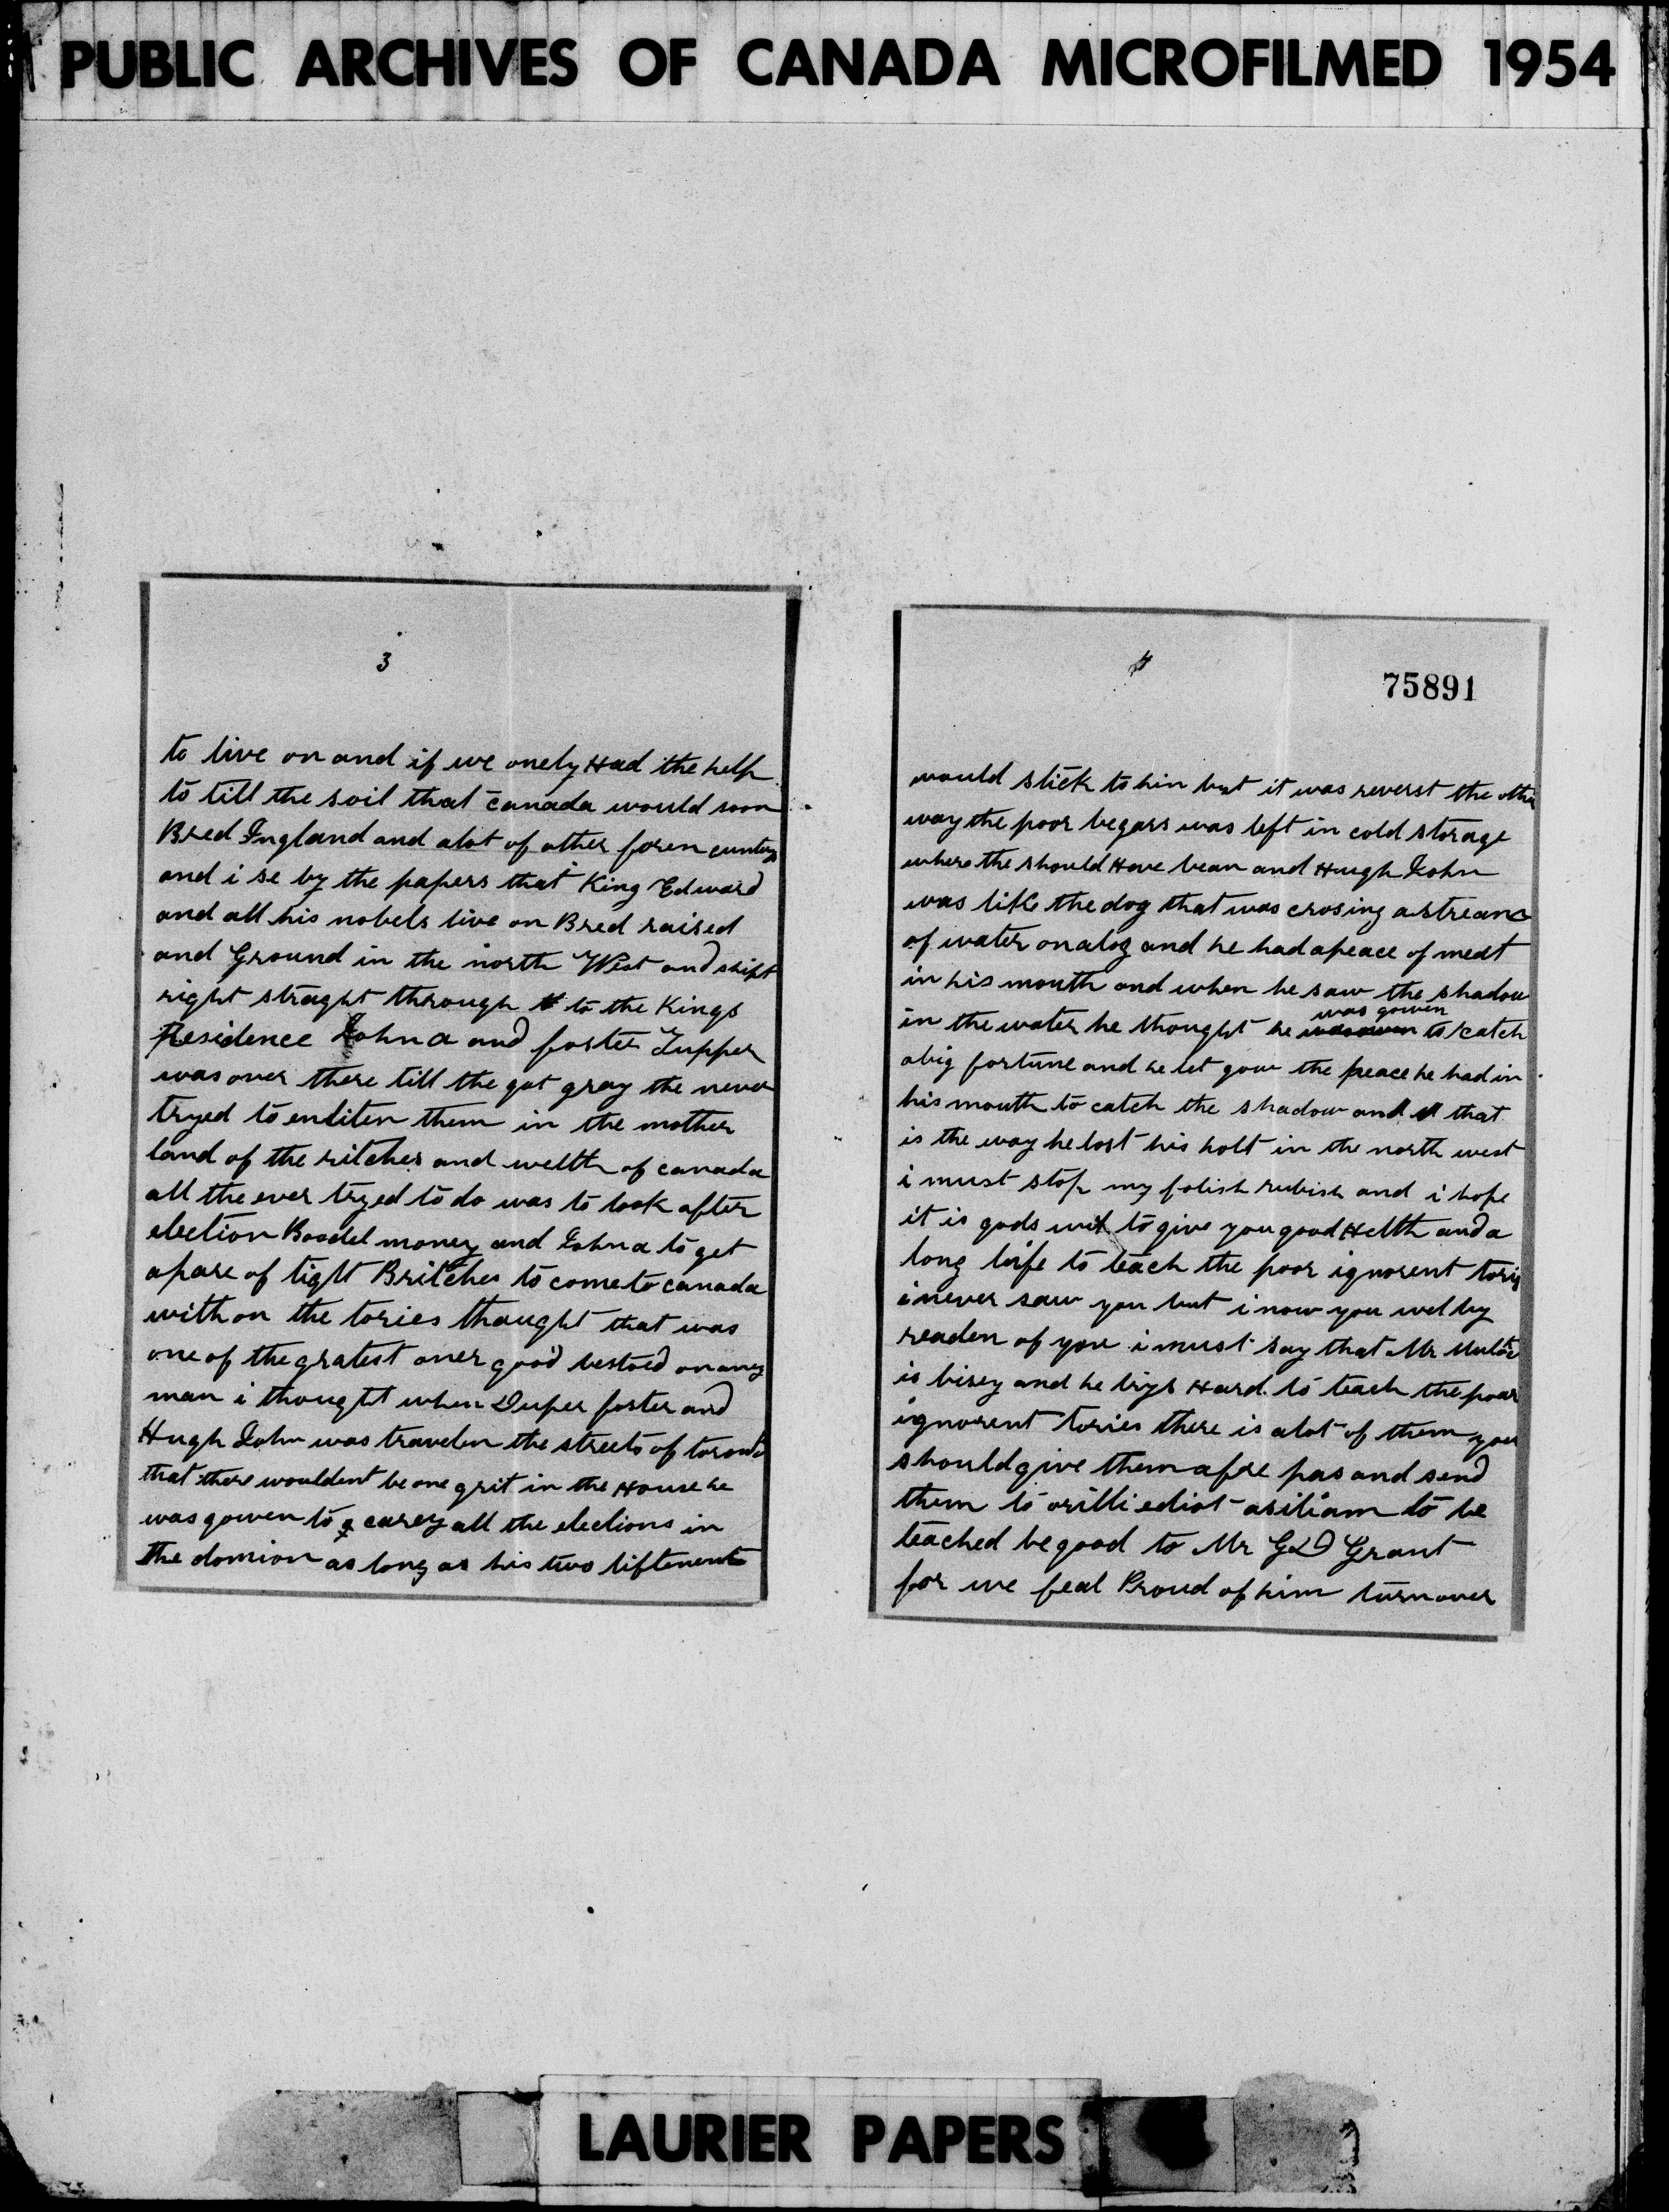 PUBLIC ARCHIVES OF CANADA MICROFILMED 1954
3
to live on and if we onely Had the help
to till the soil that canada would soon
Bred Ingland and alot of other foren cuntrys
and i se by the papers that King Edward
and all his nobels live on Bred raised
and Ground in the north West and shipt
right straght through to the Kings
Residence John a and foster Tupper
was over there till the got gray the never
tryed to enliten them in the mother
land of the ritches and welth of canada
all the ever tryed to do was to look after
election Boodel money and John a to get
apare of tight Britches to come to canada
with on the tories thought that was
one of the gratest oner good bestoed on aney
man i thought when Duper foster and
Hugh John was travelen the streets of toronto
that there wouldent be one grit in the House he
was gowen to carey all the elections in
the domion as long as his two liftenents
4
75891
would stick to him but it was reverst the other
way the poor begars was left in cold storage
where the should Have bean and Hugh John
was like the dog that was crosing a stream
of water on a log and he had a peace of meat
in his mouth and when he saw the shadow
in the water he thought he was gowen to catch
abig fortune and he let gow the peace he had in
his mouth to catch the shadow and that
is the way he lost his holt in the north west
i must stop my folish rubish and i hope
it is gods wil to give you good Helth and a
long life to teach the poor ignorent torys
i never saw you but i now you wel by
readen of you i must say that Mr Muloc
is bisey and he trys Hard to teach the poor
ignorent tories there is alot of them you
should give them afre pas and send
them to orilli ediot asiliam to be
teached be good to Mr G D Grant
for we feal Proud of him turn over
LAURIER PAPERS